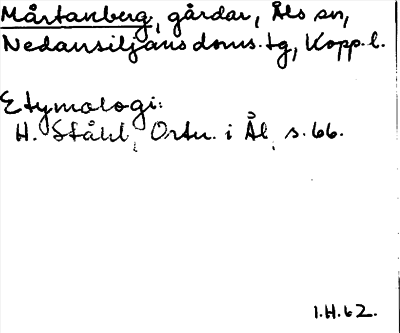 Mårtanberg, gårdar, Åls sn,
Nedansiljans doms. tg, Kopp. l.
Etymologi:
H. Ståhl, Ortn. i Ål, s. 66.
I.H.62.